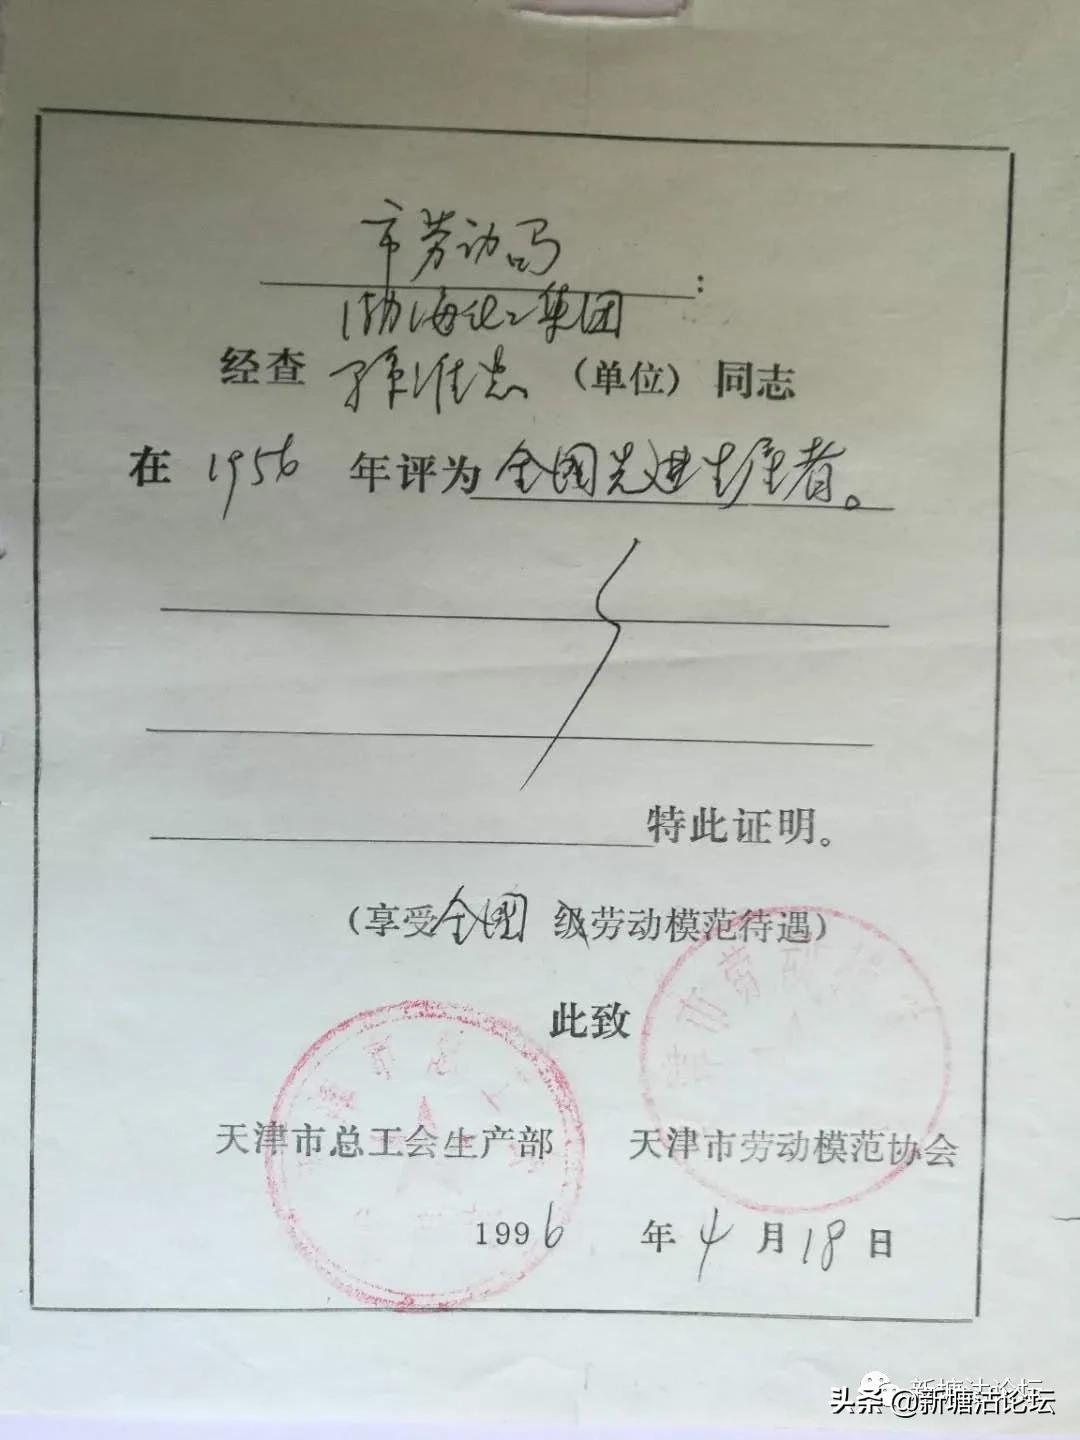 市劳动局:
渤海化工集团
经查 孙淮忠 (单位) 同志
在 1956 年评为全国先进生产者。
特此证明。
(享受全国 级劳动模范待遇)
此致
天津市总工会生产部 天津市劳动模范协会
1996 年 4 月 18 日
新塘沽论坛
头条 @新塘沽论坛